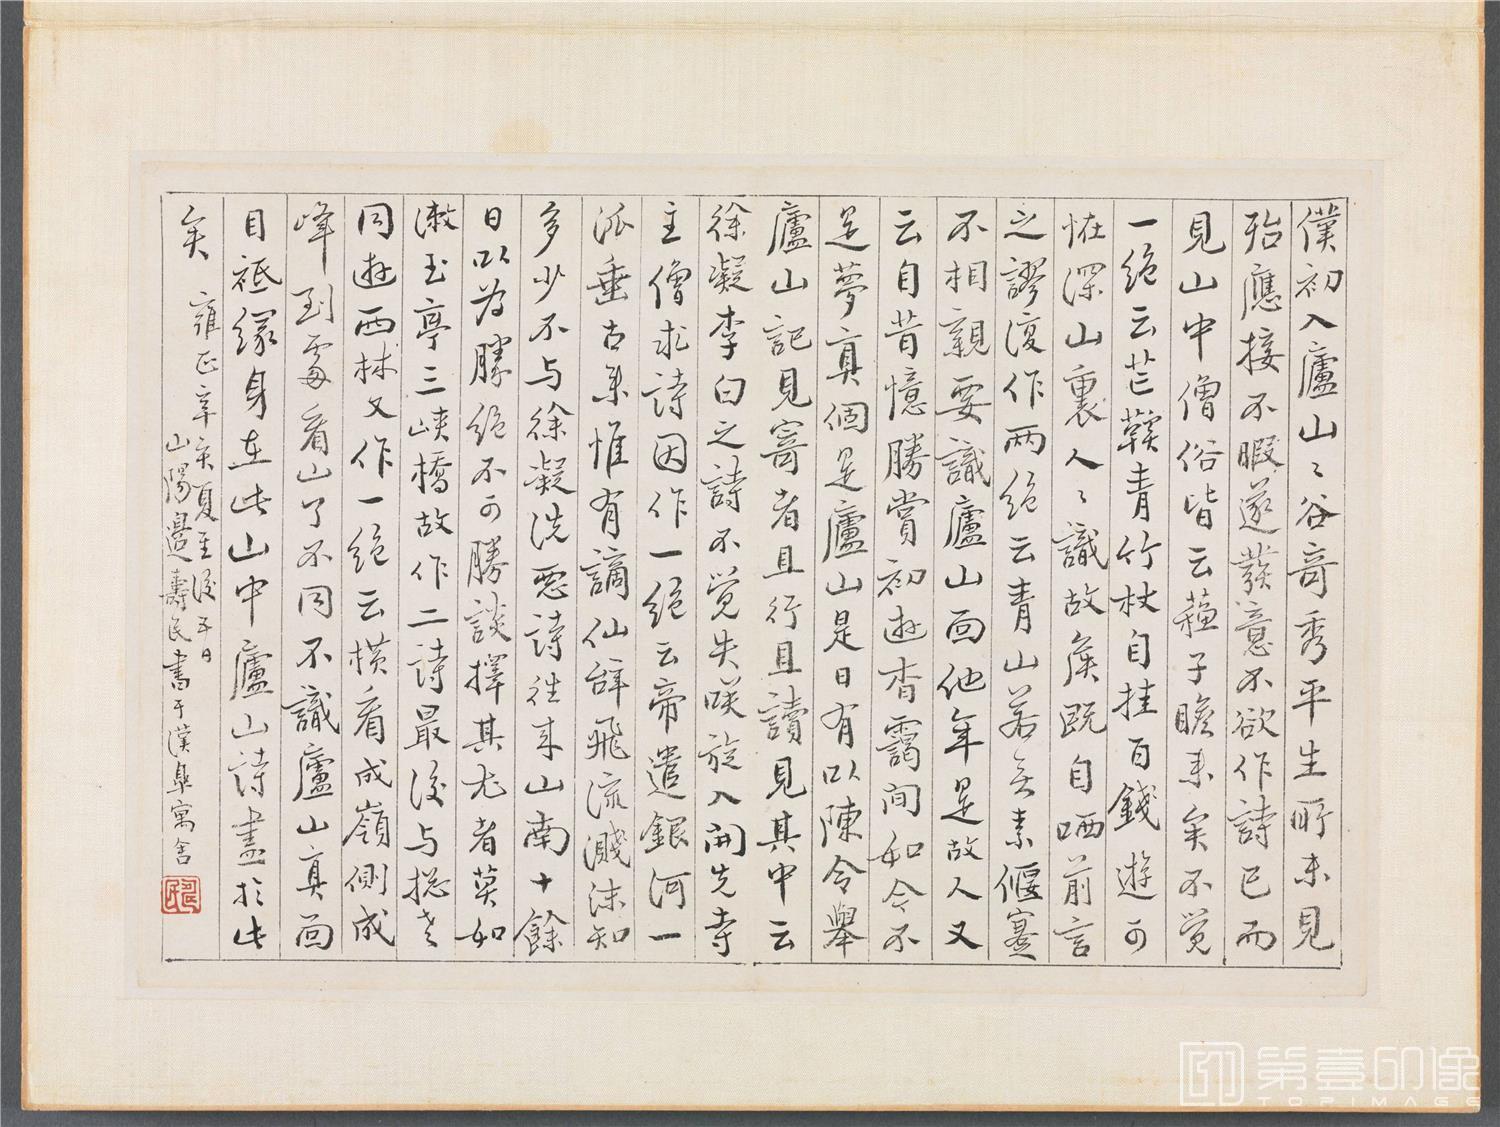 僕初入廬山山谷奇秀平生所未見
殆應接不暇遂發意不欲作詩已而
見山中僧俗皆云蘇子瞻來矣不覺
一絕云芒鞵青竹杖自挂百錢遊可
怪深山裏人人識故矦既自哂前言
之謬復作兩絕云青山若無素偃蹇
不相親要識廬山面他年是故人又
云自昔憶勝賞初遊杳靄間如今不
是夢真個是廬山是日有以陳令舉
廬山記見寄者且行且讀見其中云
徐凝李白之詩不覺失咲旋入開先寺
主僧求詩因作一絕云帝遣銀河一
派垂古來惟有謫仙辭飛流濺沫知
多少不与徐凝洗惡詩往來山南十餘
日以為勝絕不可勝談擇其尤者莫如
漱玉亭三峽橋故作二詩最後与摠老
同遊西林又作一絕云橫看成嶺側成
峰到處看山了不同不識廬山真面
目祗緣身在此山中廬山詩盡於此
矣 雍正辛亥夏至後五日
山陽邊壽民書于漢皐寓舍
第壹印像
TOPIMAGE